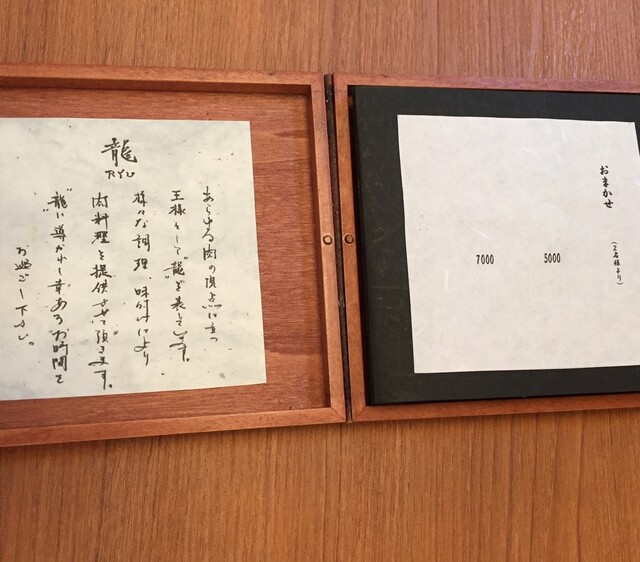 龍
RYU
あらゆる肉の頂点に立つ
王様として"龍"を表しています。
様々な調理、味付けにより
肉料理を提供させて頂きます。
"龍"に導かれし幸あるお時間を
お過ごし下さい。
おまかせ
(2名様より)
5000
7000